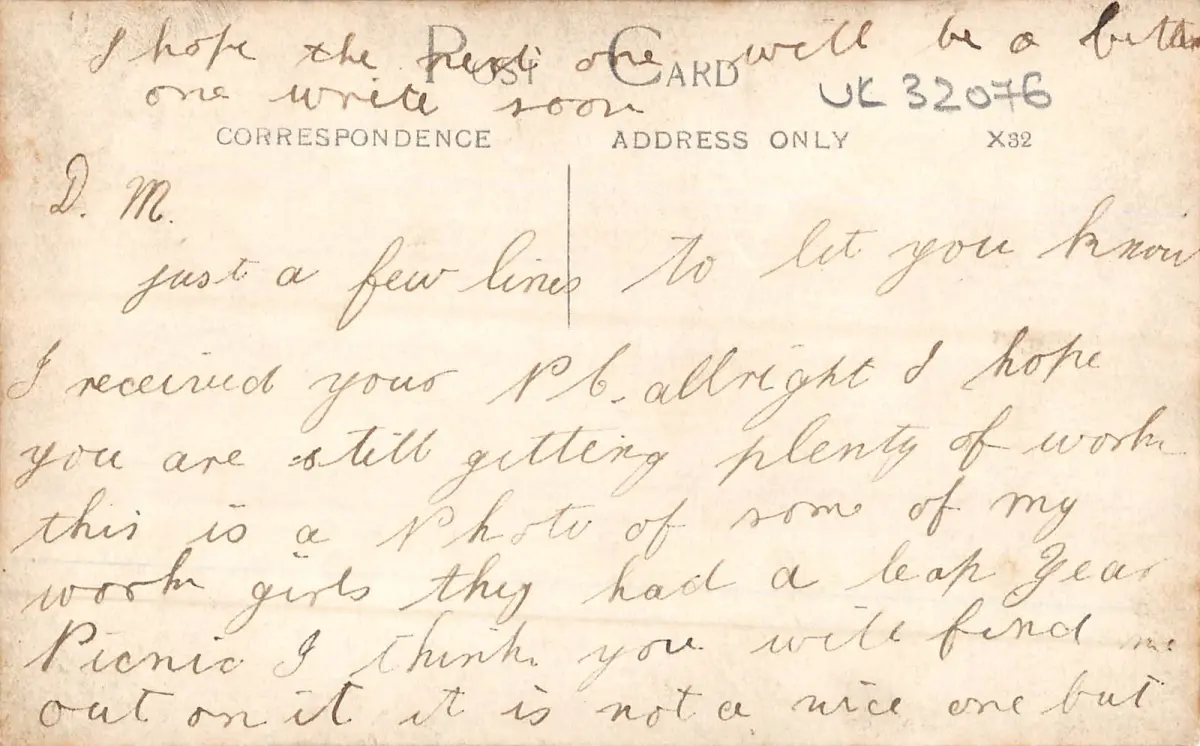 I hope the next one will be a better
one write soon
POST CARD
UK 32076
CORRESPONDENCE ADDRESS ONLY X32
D. M.
just a few lines to let you know
I received your P C. allright I hope
you are still getting plenty of work
this is a Photo of some of my
work girls they had a leap Year
Picnic I think you will find me
out on it it is not a nice one but